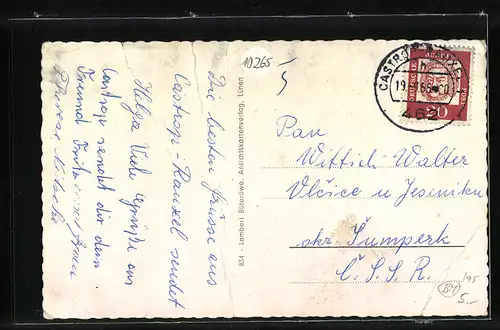 10265
Die besten Grüsse aus
Castrop-Rauxel sendet
Helga Viele Grüße aus
Castrop sendet dir dein
Freund Fritz
854 - Lambert Büterowe, Ansichtskartenverlag, Lünen
CASTROP-RAUXEL
h
19
462
DEUTSCHE
POST
20
Pan
Wittich-Walter
Vlčice u Jeseníku
okr. Šumperk
Č.S.S.R.
5.-